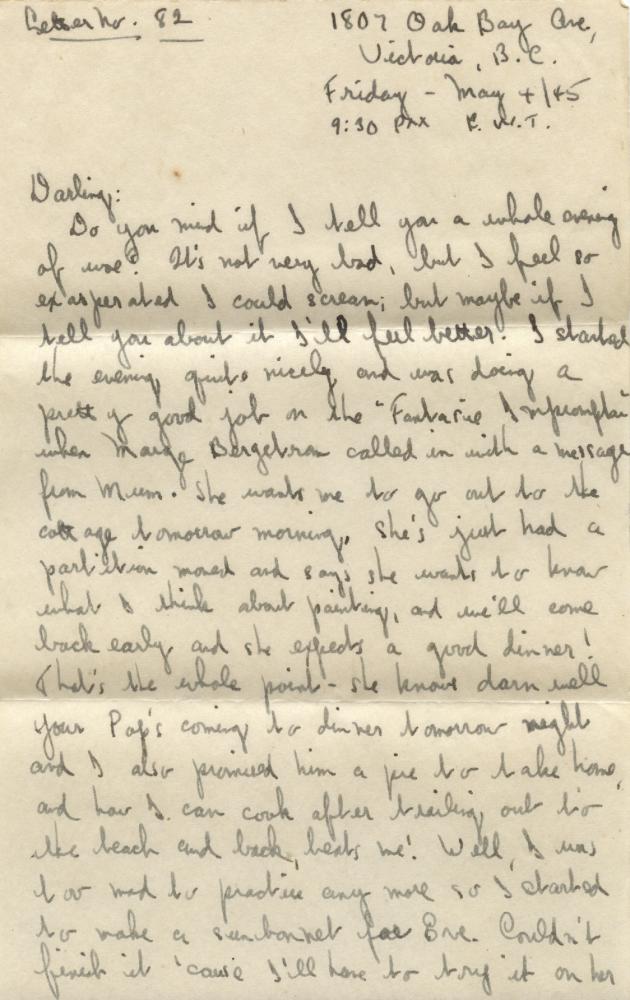 Letter No. 82
1807 Oak Bay Ave,
Victoria, B.C.
Friday - May 4/45
9:30 P.M. P.W.T.
Darling:
Do you mind if I tell you a whole evening
of woe? It's not very bad, but I feel so
exasperated I could scream; but maybe if I
tell you about it I'll feel better. I started
the evening quite nicely and was doing a
pretty good job on the "Fantasie Impromptu"
when Marge Bergstrom called in with a message
from Mum. She wants me to go out to the
cottage tomorrow morning, she's just had a
partition moved and says she wants to know
what I think about painting, and we'll come
back early and she expects a good dinner!
That's the whole point - she knows darn well
your Pop's coming to dinner tomorrow night
and I also promised him a pie to take home,
and how I can cook after trailing out to
the beach and back, beats me! Well, I was
too mad to practice any more so I started
to make a sunbonnet for Eve. Couldn't
finish it 'cause I'll have to try it on her